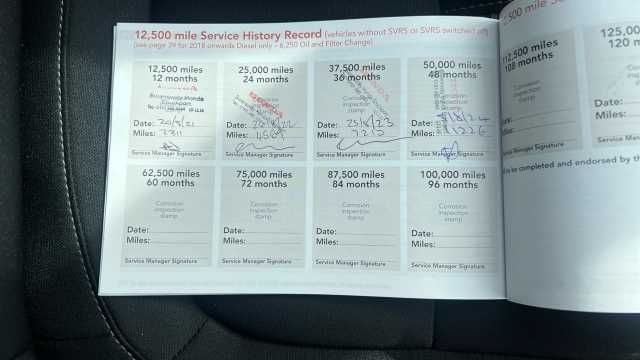 12,500 mile Service History Record (vehicles without SVRS or SVRS switched off)
(see page 39 for 2018 onwards Diesel only - 6,250 Oil and Filter Change)
12,500 miles
12 months
Date: 20/4/21
Miles: 7311
Service Manager Signature
25,000 miles
24 months
Corrosion
inspection
stamp
Date:
Miles:
Service Manager Signature
37,500 miles
36 months
Corrosion
inspection
stamp
Date: 25/8/23
Miles: 7215
Service Manager Signature
50,000 miles
48 months
Corrosion
inspection
stamp
Date: 8/8/24
Miles: 11226
Service Manager Signature
62,500 miles
60 months
Corrosion
inspection
stamp
Date:
Miles:
Service Manager Signature
75,000 miles
72 months
Corrosion
inspection
stamp
Date:
Miles:
Service Manager Signature
87,500 miles
84 months
Corrosion
inspection
stamp
Date:
Miles:
Service Manager Signature
100,000 miles
96 months
Corrosion
inspection
stamp
Date:
Miles:
Service Manager Signature
112,500 miles
108 months
Corrosion
inspection
stamp
Date:
Miles:
Service Manager Signature
125,00
120 m
Date:
Miles:
Service Manag
to be completed and endorsed by th